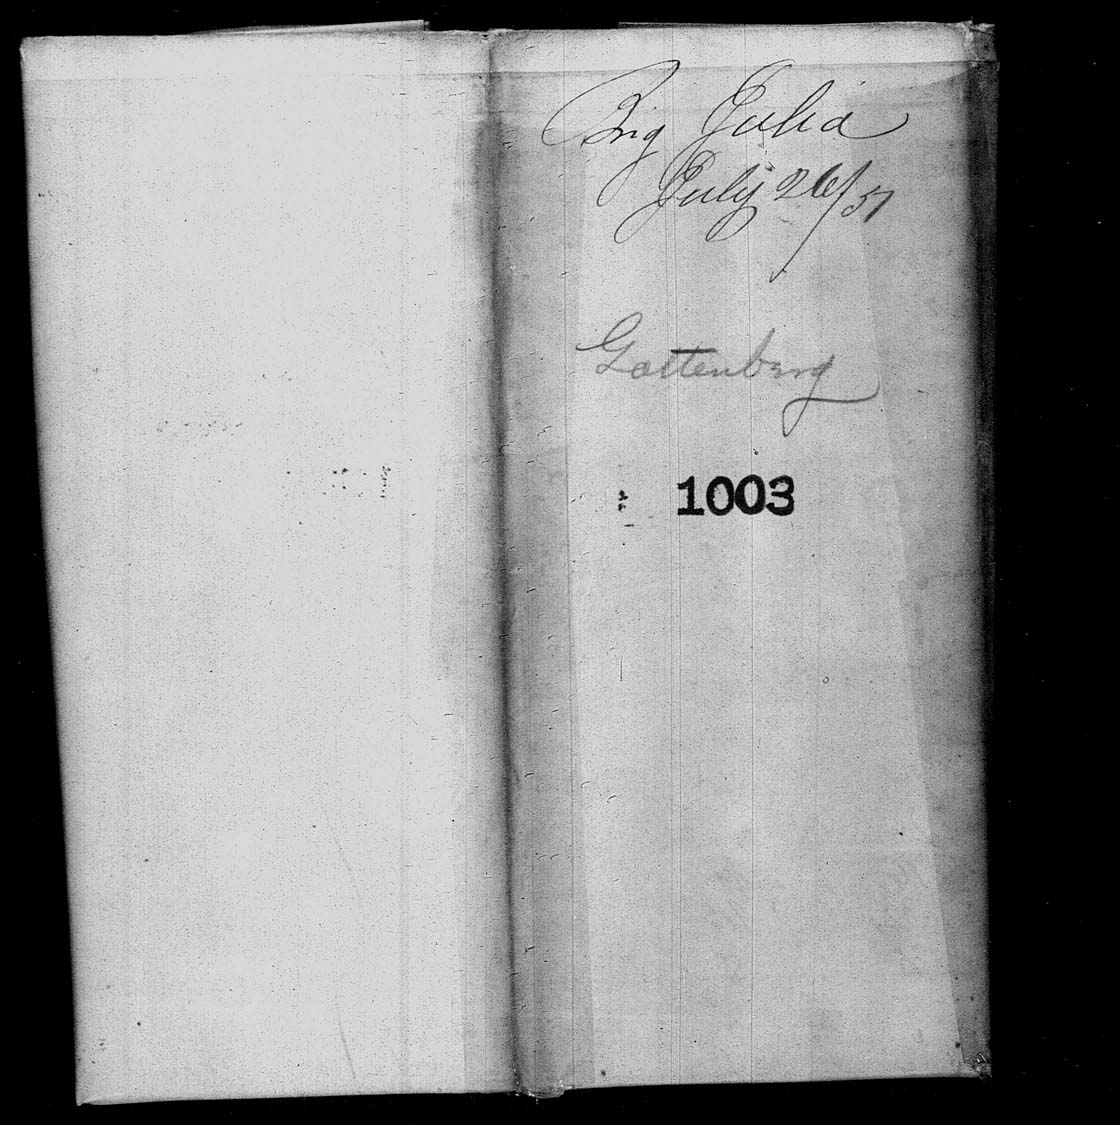 Brig Julia
July 26/51
Gottenburg
1003